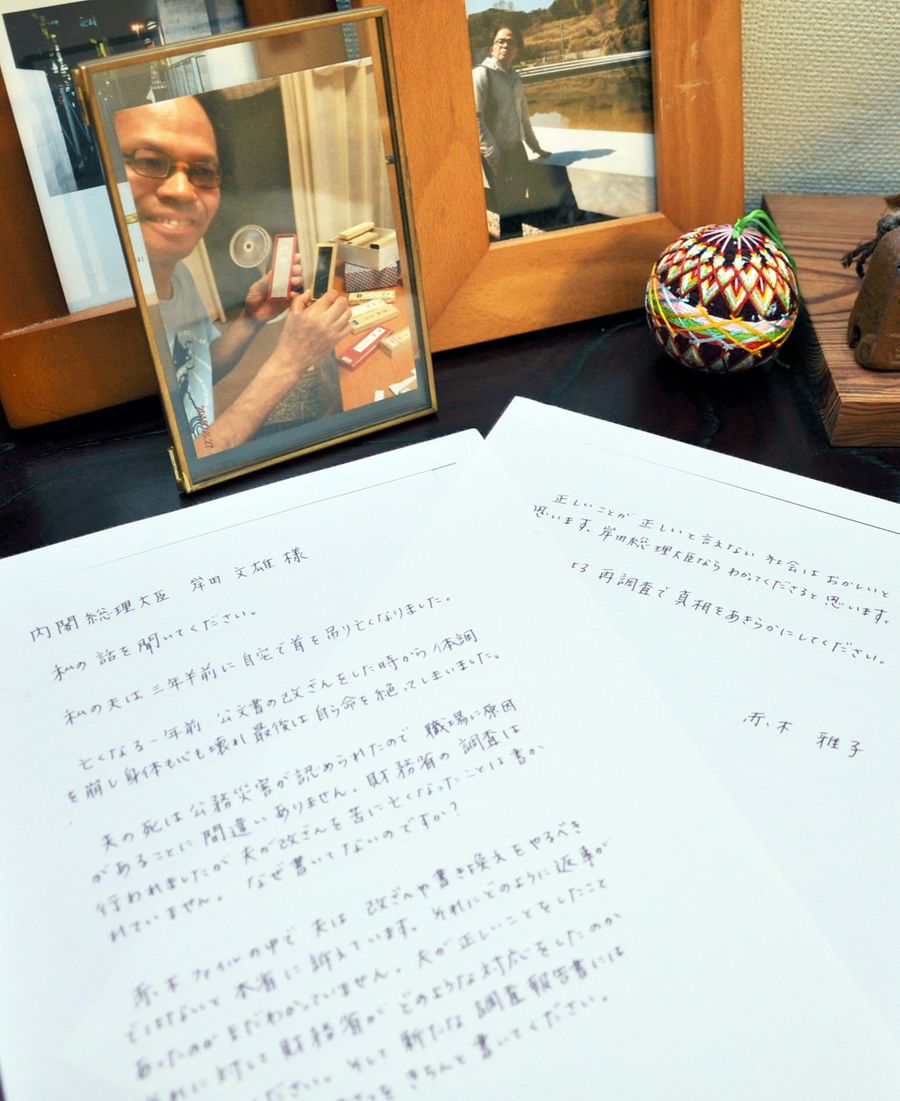 内閣総理大臣 岸田 文雄 様
私の話を聞いてください。
私の夫は三年半前に自宅で首を吊り亡くなりました。
亡くなる一年前、公文書の改ざんをした時から体調
を崩し身体も心も壊れ最後は自ら命を絶ってしまいました。
夫の死は公務災害が認められたので職場に原因
があることに間違いありません。財務省の調査は
行われましたが夫が改ざんを苦に亡くなったことは書か
れていません。なぜ書いてないのですか?
赤木ファイルの中で夫は改ざんや書き換えをやるべき
ではないと本省に訴えています。それにどのように返事が
あったのかまだわかっていません。夫が正しいことをしたこと
それに対して財務省がどのような対応をしたのか
ください。そして新たな調査報告書には
きちんと書いてください。
正しいことが正しいと言えない社会はおかしいと
思います。岸田総理大臣ならわかってくださると思います。
再調査で真相をあきらかにしてください。
赤木 雅子